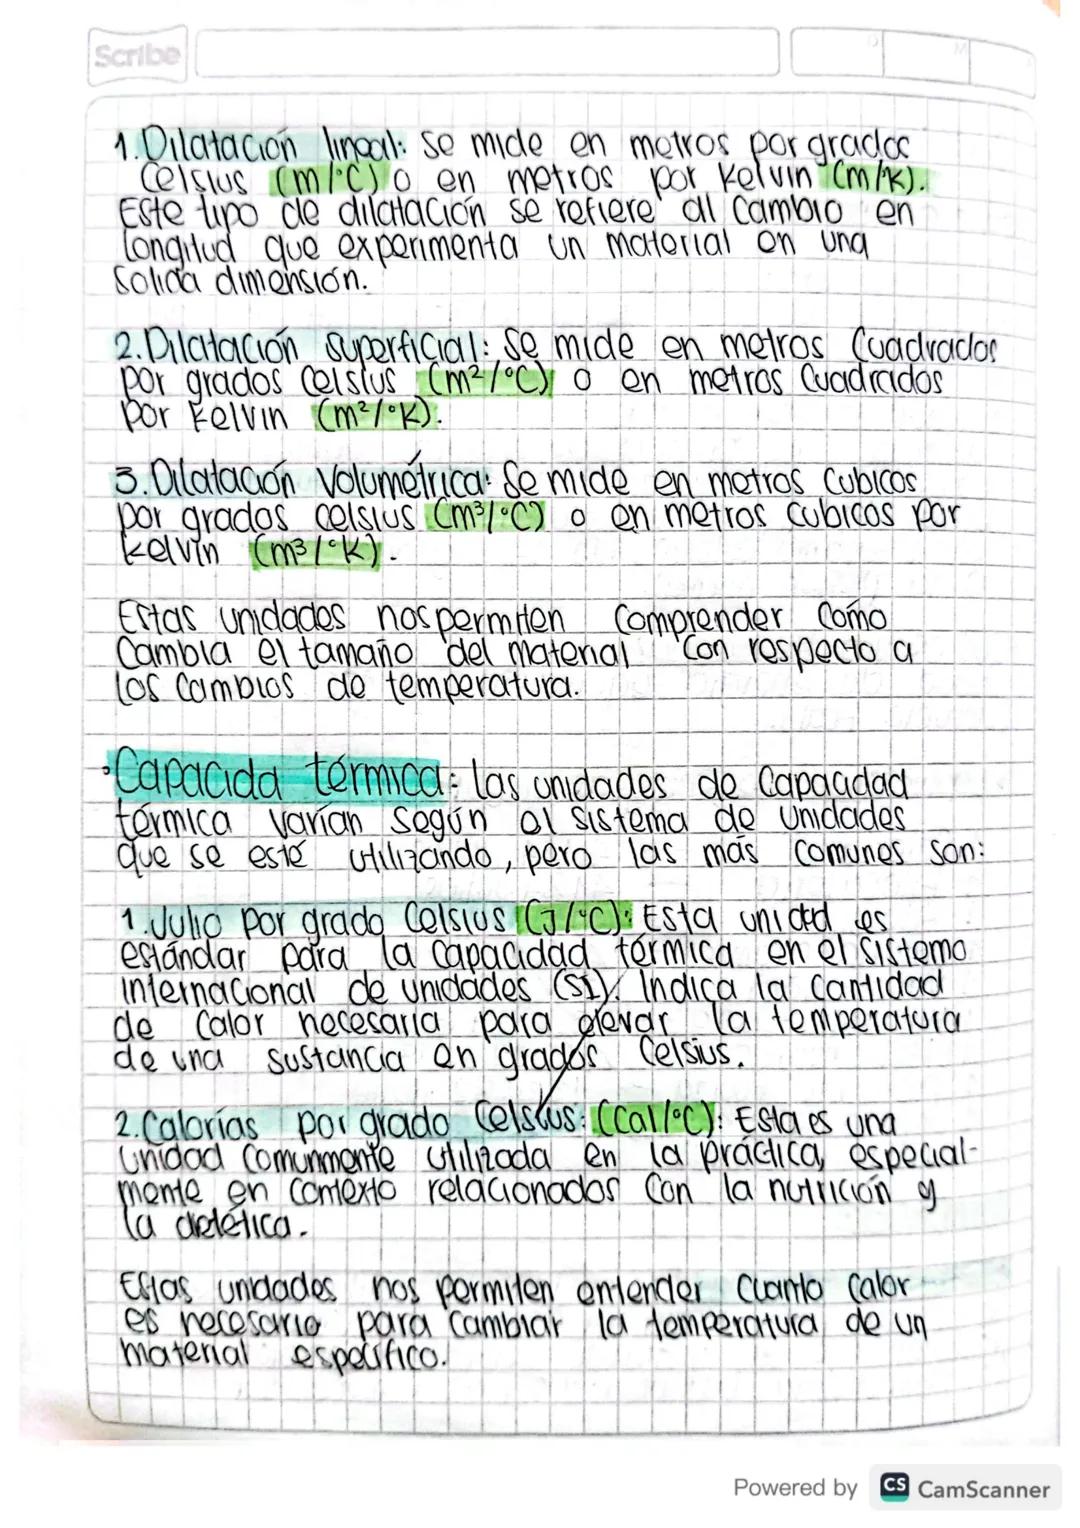 Scribe
D
M
1. Dilatación lineal: Se mide en metros por grados
Celsius (m/°C) o en metros por Kelvin (m/°K).
Este tipo de dilatación se refiere al cambio en
longitud que experimenta un material en una
solida dimensión.
2. Dilatación superficial: Se mide en metros cuadrados
por grados celsius (m²/°C) o en metros cuadrados
por Kelvin (m²/°K).
3. Dilatación Volumétrica: Se mide en metros cubicos
por grados celsius (m³/°C) o en metros cubicos por
kelvin (m³/°K).
Estas unidades nos permiten comprender como
cambia el tamaño del material con respecto a
los cambios de temperatura.
•Capacida térmica: las unidades de capacidad
térmica varían según el sistema de unidades
que se esté utilizando, pero las más comunes son:
1. Julio por grado Celsius (J/°C): Esta unidad es
estándar para la capacidad térmica en el sistema
internacional de unidades (SI). Indica la cantidad
de calor necesaria para elevar la temperatura
de una sustancia en grados Celsius.
2. Calorías por grado Celsius: (Cal/°C): Esta es una
unidad comunmente utilizada en la práctica, especial-
mente en contexto relacionados con la nutrición y
la dietética.
Estas unidades nos permiten entender cuanto calor
es necesario para cambiar la temperatura de un
material específico.
Powered by CS CamScanner